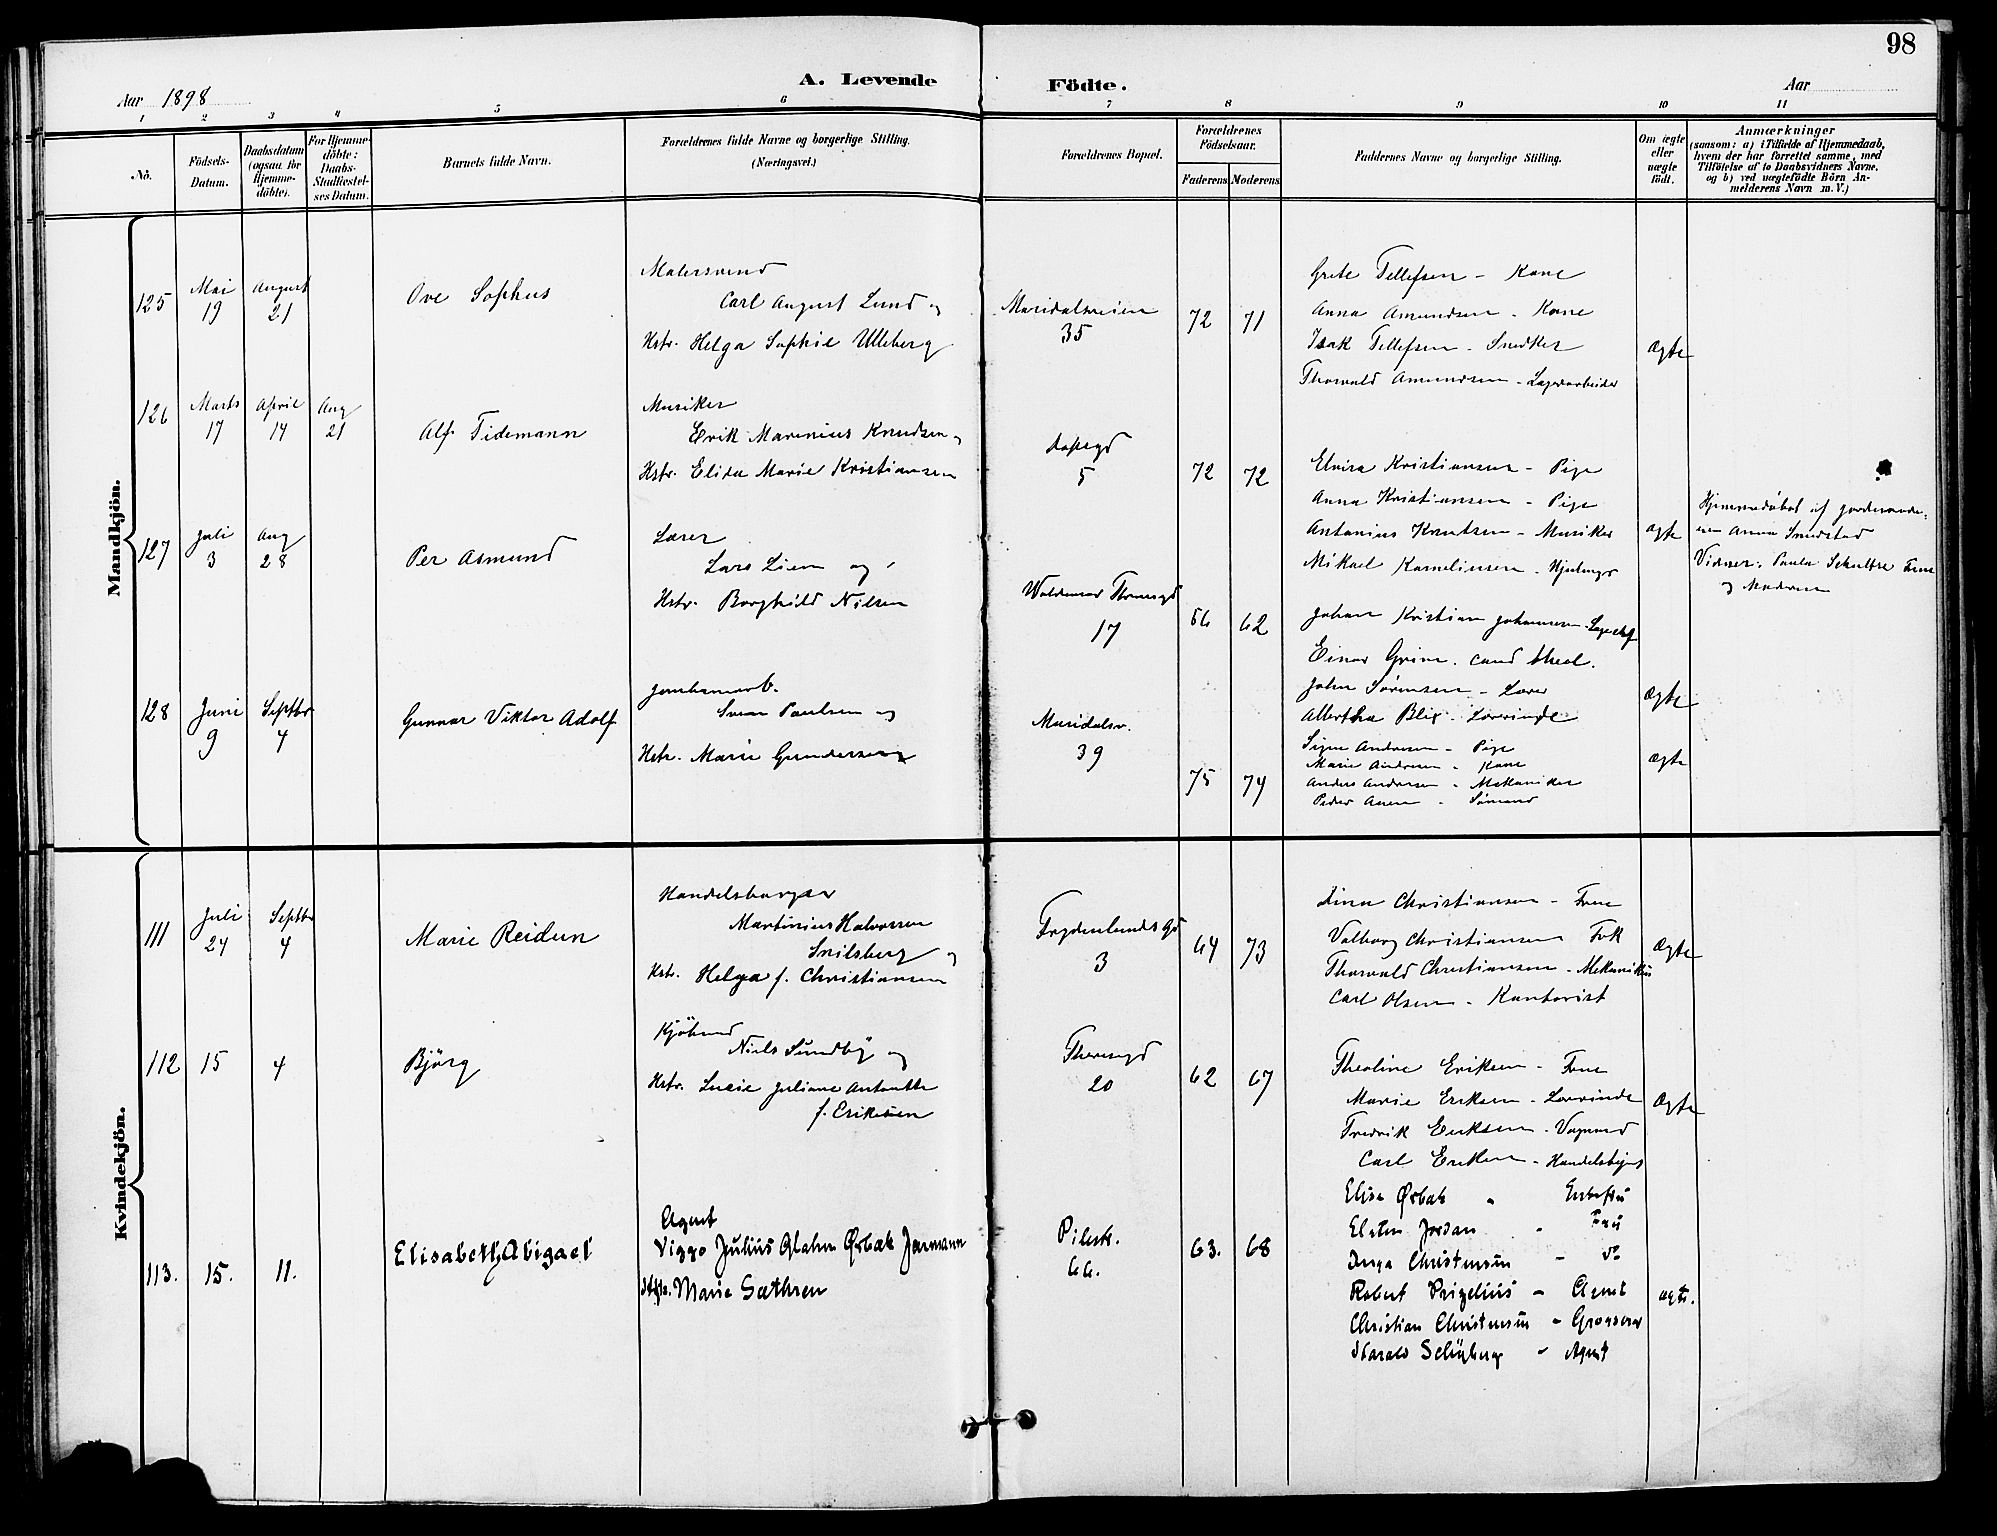 98
A. Levende Födte.
Aar 1898
Aar
1 2 3 4 5 6 7 8 9 10 11
No.
Födsels-
Datum.
Daabsdatum
(ogsaa for
Hjemme-
döbte).
For Hjemme-
döbte:
Daabs-
Stadfæstel-
ses Datum.
Barnets fulde Navn.
Forældrenes fulde Navne og borgerlige Stilling.
(Næringsvei.)
Forældrenes Bopæl.
Forældrenes
Födselsaar.
Faderens Moderens
Faddernes Navne og borgerlige Stilling.
Om ægte
eller
uægte
födt.
Anmærkninger
(saasom: a) i Tilfælde af Hjemmedaab,
hvem der har forrettet samme, med
Tilföielse af to Daabsvidners Navne,
og b) ved uægtefödte Börn An-
melderens Navn m. V.)
Mandkjön.
125
Mai
19
August
21
Ove Sophus
Malersvend
Carl August Lund og
Hstr. Helga Sophie Ulleberg
Maridalsveien
35
72 71
Grete Tellefsen - Kone
Anna Amundsen - Kone
Isak Tellefsen - Snedker
Thorvald Amundsen - Lagerarbeider
Ægte
126
Marts
17
April
14
Aug
21
Alf Tidemann
Musiker
Erik Marenius Knudsen og
Hstr. Elida Marie Kristiansen
5
72 72
Elvira Kristiansen - Pige
Anna Kristiansen - Pige
Antonius Knutsen - Musiker
Mikael Kornelinsen -
ægte
Hjemmedøbt af jordemode-
ren Anna Smedstad
Vidner: Paula Schultze Frue
og Moderen
127
Juli
3
Aug
28
Per Asmund
Lærer
Lars Lien og
Hstr. Borghild Nilsen
Waldemar Thranesgd
17
66 62
Johan Kristian Johannsen
Einar Grim. cand theol.
John Sørensen - Lærer
Albertha Blix - Lærerinde
Ægte
128
Juni
9
Septbr
4
Gunnar Viktor Adolf
Jernbanearb.
Sven Paulsen og
Hstr. Marie Gundersen
Maridalsv.
39
75 74
Signe Andresen - Pige
Marie Andresen - Kone
Anders Andresen - Mekaniker
Peder - Sømand
Ægte
Kvindekjön.
111
Juli
24
Septbr
4
Marie Reidun
Handelsborger
Martinius Halvorsen
Snilsberg og
Hstr. Helga f. Christiansen
Frydenlundsgd
3
64 73
Lina Christiansen - Frue
Valborg Christiansen Frk
Thorvald Christiansen - Mekaniker
Carl Olsen - Kontorist
Ægte
112
15
4
Bjørg
Kjøbmd
Niels Sundby og
Hstr. Lucie Juliane Antonette
f. Eriksen
Theresegd
20
62 67
Theoline Eriksen - Frue
Marie Eriksen - Lærerinde
Fredrik Eriksen - Vognmd
Carl Eriksen - Handelsbgr
Ægte
113.
15.
11.
Elisabeth Abigael
Agent
Viggo Julius Glahn Ørbæk Jarmann
Hstr. Marie Sæthren
Pilestr.
66.
63. 68
Elise Ørbæk - Enkefru
Elsten Jordan - Fru
Inga Christensen - do
Robert Prizelius - Agent
Christian Christensen - Grosserer
Harald - Agent
ægte.